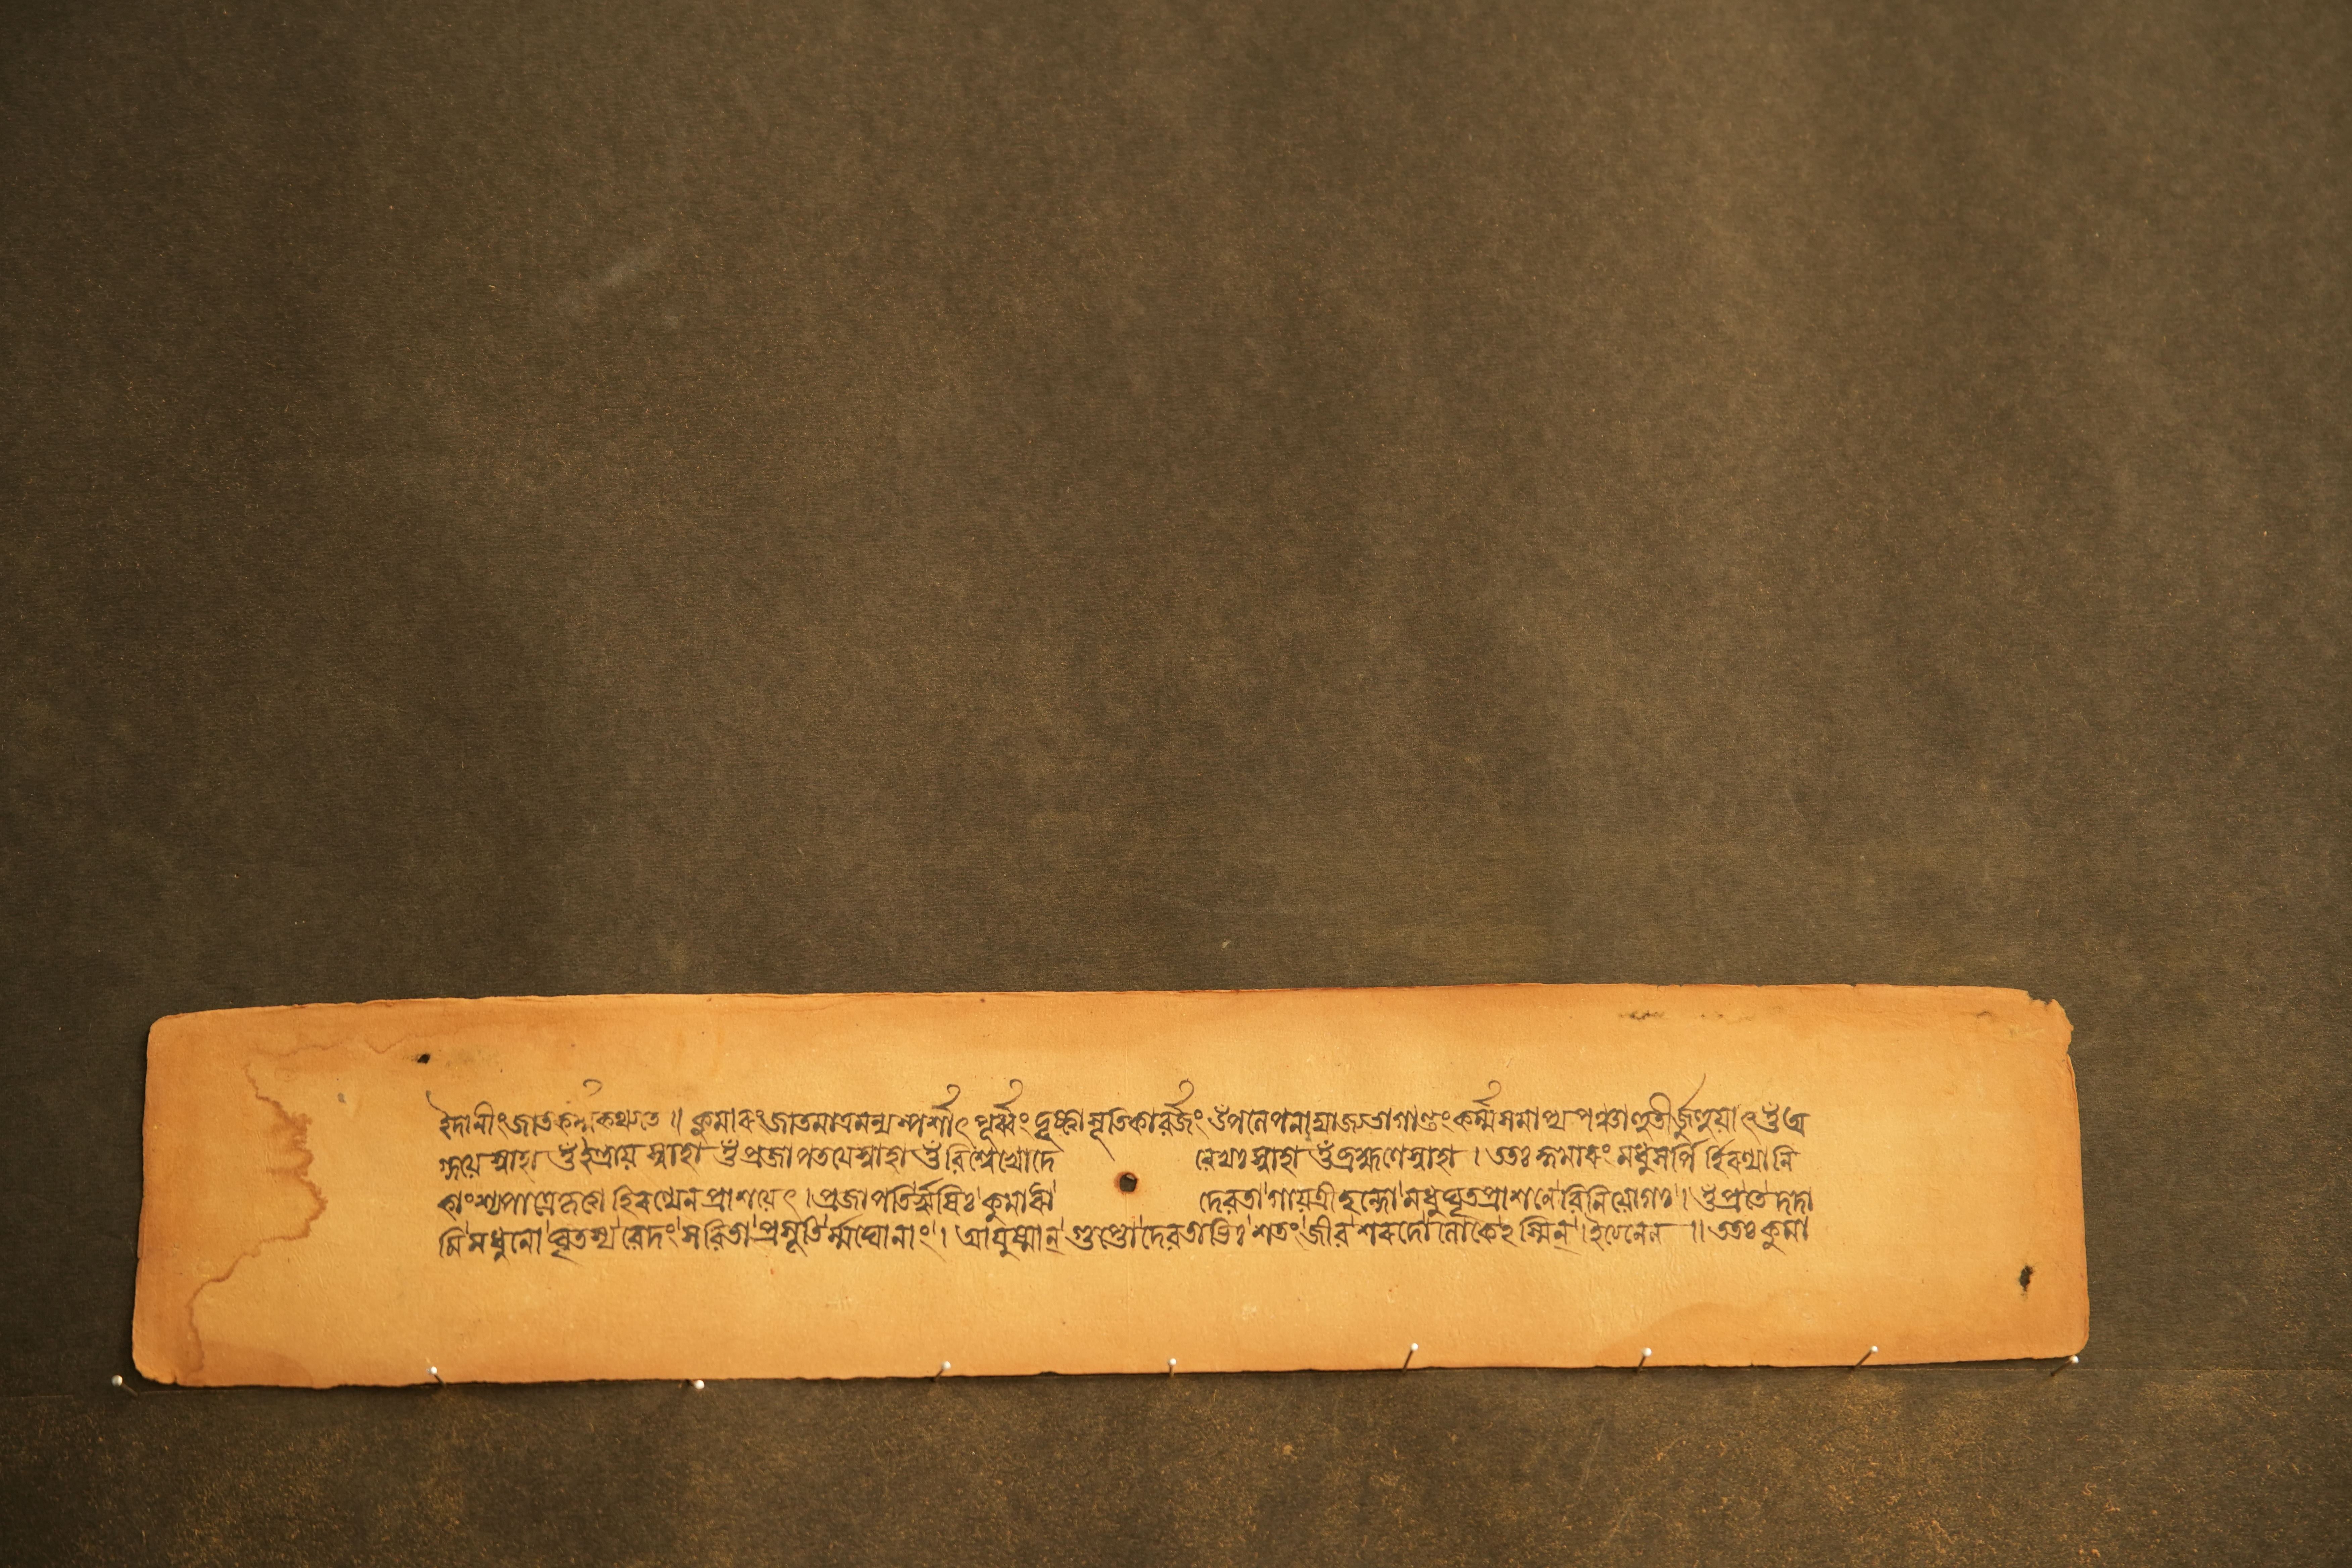 ইদানীং জাতকর্ম্ম কথ্যতে ॥ কুমাৰং জাতমাত্রমন্যস্পর্শাৎ পূর্ব্বং দৃষ্ট্বা সূতিকাবর্জং পনেপনায়াজ্যভাগান্তং কর্ম্ম সমাপ্য পঞ্চাহুতীর্জুহুয়াৎ ওঁ অ
গ্নয়ে স্বাহা ওঁ ইন্দ্রায় স্বাহা ওঁ প্রজাপতয়ে স্বাহা ওঁ বিশ্বেভ্যো দে বেভ্যঃ স্বাহা ওঁ ব্রহ্মণে স্বাহা । ততঃ কুমাৰং মধুসর্পি হিৰণ্যানি
কাংশ্যপাত্রে হিৰণ্যেন প্রাশয়েৎ । প্রজাপতির্ঋষিঃ কুমাৰো দেবতা গায়ত্রী ছন্দো মধুঘৃতপ্রাশনে বিনিয়োগঃ । ওঁ প্রতে দদা
মি মধুনো ঘৃতস্য বেদং সবিতা প্রসূতং মঘোনাং । আয়ুষ্মান্ গুপ্তো দেবতাভিঃ শতং জীব শৰদো লোকেঽস্মিন্ । ইত্যনেন ॥ ততঃ কুমা